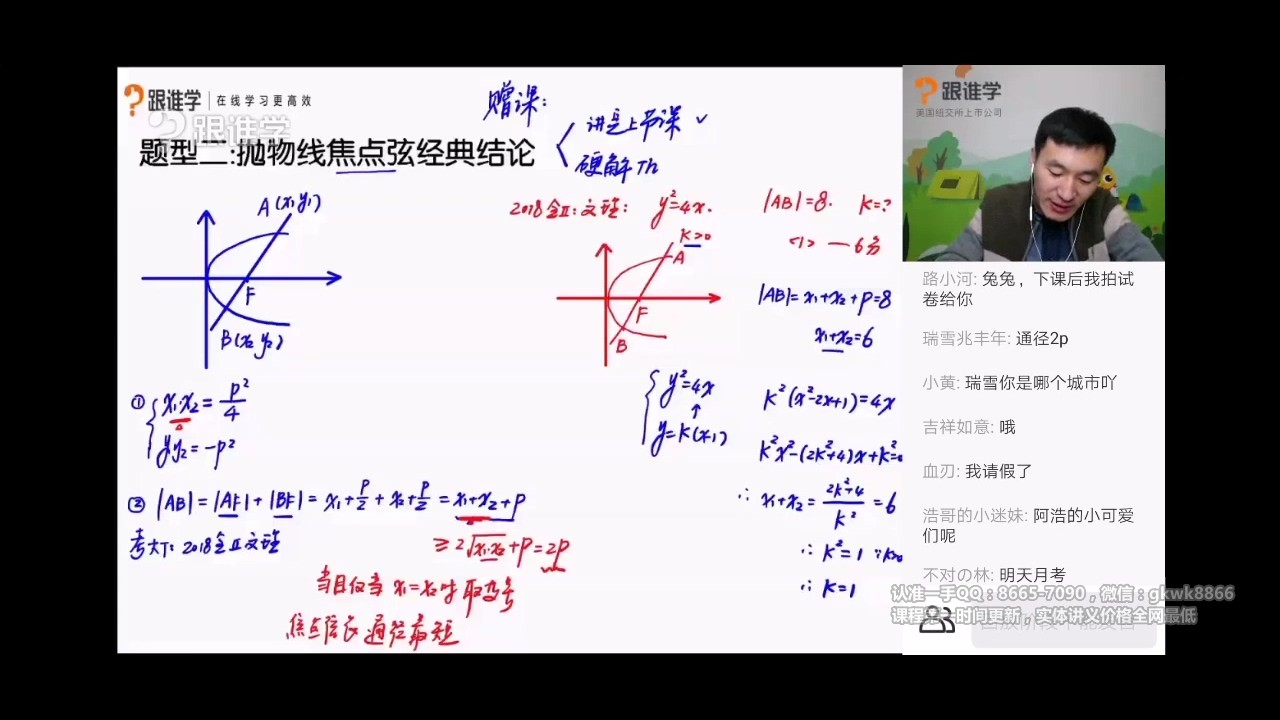 跟谁学 | 在线学习更高效
跟谁学
题型二:抛物线焦点弦经典结论
赠课:
讲是上节课 ✓
硬解Th
A(x₁y₁)
F
B(x₂y₂)
① x₁·x₂=p²/4
y₁y₂=-p²
② |AB|=|AF|+|BF|=x₁+p/2+x₂+p/2=x₁+x₂+p
≥2√x₁·x₂+p=2p
当且仅当 x₁=x₂时 取等号
通径最短
2018全Ⅱ:文理: y²=4x.
|AB|=8. K=?
<1> — 6分
K>0
A
F
B
|AB|=x₁+x₂+p=8
x₁+x₂=6
y²=4x
y=K(x-1)
K²(x²-2x+1)=4x
K²x²-(2K²+4)x+K²=0
∴ x₁+x₂=2K²+4/K²=6
∴ K²=1 ∵K>0
∴ K=1
跟谁学
美国纽交所上市公司
路小河: 兔兔，下课后我拍试
卷给你
瑞雪兆丰年: 通径2p
小黄: 瑞雪你是哪个城市吖
吉祥如意: 哦
血刃: 我请假了
浩哥的小迷妹: 阿浩的小可爱
们呢
不对の林: 明天月考
认准一手QQ：8665-7090，微信：gkwk8866
课程第一时间更新，实体讲义价格全网最低